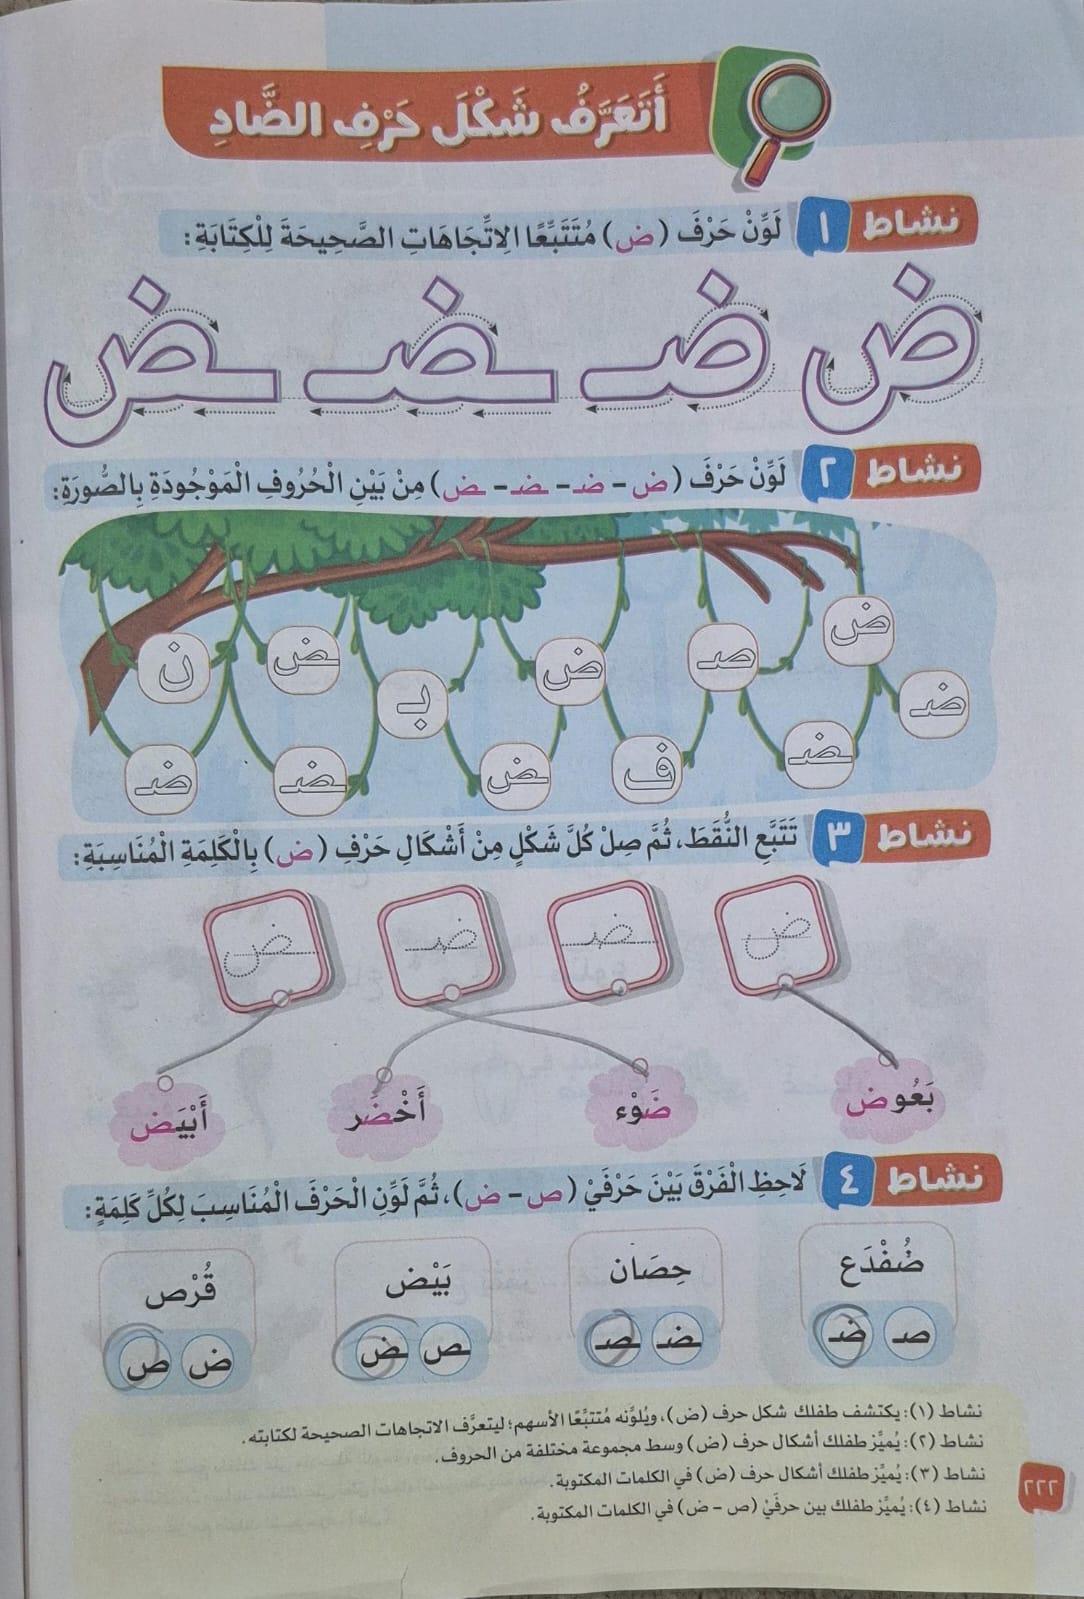 أَتَعَرَّفُ شَكْلَ حَرْفِ الضَّادِ
نشاط ١ لَوِّنْ حَرْفَ (ض) مُتَتَبِّعًا الِاتِّجَاهَاتِ الصَّحِيحَةَ لِلْكِتَابَةِ:
ض ضـ ـضـ ـض
نشاط ٢ لَوِّنْ حَرْفَ (ض - ضـ - ـضـ - ـض) مِنْ بَيْنِ الْحُرُوفِ الْمَوْجُودَةِ بِالصُّورَةِ:
ض صـ ض ـض ن
ضـ بـ
ـضـ ف ـض ـضـ ضـ
نشاط ٣ تَتَبَّعِ النُّقَطَ، ثُمَّ صِلْ كُلَّ شَكْلٍ مِنْ أَشْكَالِ حَرْفِ (ض) بِالْكَلِمَةِ الْمُنَاسِبَةِ:
ض ـضـ ضـ ـض
بَعُوض ضَوْء أَخْضَر أَبْيَض
نشاط ٤ لَاحِظِ الْفَرْقَ بَيْنَ حَرْفَيْ (ص - ض)، ثُمَّ لَوِّنِ الْحَرْفَ الْمُنَاسِبَ لِكُلِّ كَلِمَةٍ:
ضُفْدَع حِصَان بَيْض قُرْص
صـ ضـ ـضـ ـصـ ـص ـض ض ص
نشاط (١): يكتشف طفلك شكل حرف (ض)، ويُلوِّنه مُتتبِّعًا الأسهم؛ ليتعرَّف الاتجاهات الصحيحة لكتابته.
نشاط (٢): يُميِّز طفلك أشكال حرف (ض) وسط مجموعة مختلفة من الحروف.
نشاط (٣): يُميِّز طفلك أشكال حرف (ض) في الكلمات المكتوبة.
نشاط (٤): يُميِّز طفلك بين حرفَيْ (ص - ض) في الكلمات المكتوبة.
٢٢٢